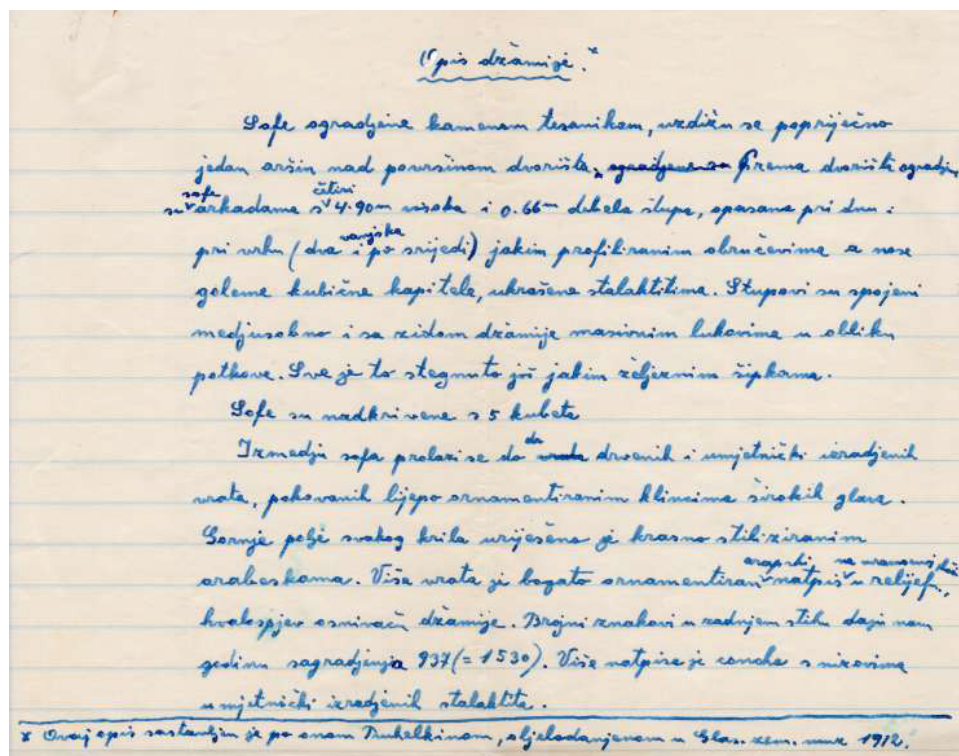 Opis džamije.*
Sofe ogradjene kamenom tesanikom, uzdižu se popriječno
jedan aršin nad površinom dvorišta, ogradjene su Prema dvorištu ogradjene
sofe četiri
su arkadama s 4.90m visoka i 0.66m debela stupa, opasana pri dnu i
vanjska
pri vrhu (dva i po srijedi) jakim profiliranim obručevima a nose
goleme kubične kapitele, ukrašene stalaktitima. Stupovi su spojeni
medjusobno i sa zidom džamije masivnim lukovima u obliku
potkove. Sve je to stegnuto još jakim željeznim šipkama.
Sofe su nadkrivene s 5 kubeta
da
Izmedju sofa prolazi se do vrata drvenih i umjetnički izradjenih
vrata, pokovanih lijepo ornamentiranim klincima širokih glava.
Gornje polje svakog krila uriješeno je krasno stiliziranim
arapski na
arabeskama. Više vrata je bogato ornamentiran natpis u relijefu,
hvalospjev osnivaču džamije. Brojni znakovi u zadnjem stihu daju nam
godinu sagradjenja 937 (= 1530). Više natpisa je concha s nizovima
umjetnički izradjenih stalaktita.
* Ovaj opis sastavljen je po onom Truhelkinom, objelodanjenom u Glas. zem. muz 1912.